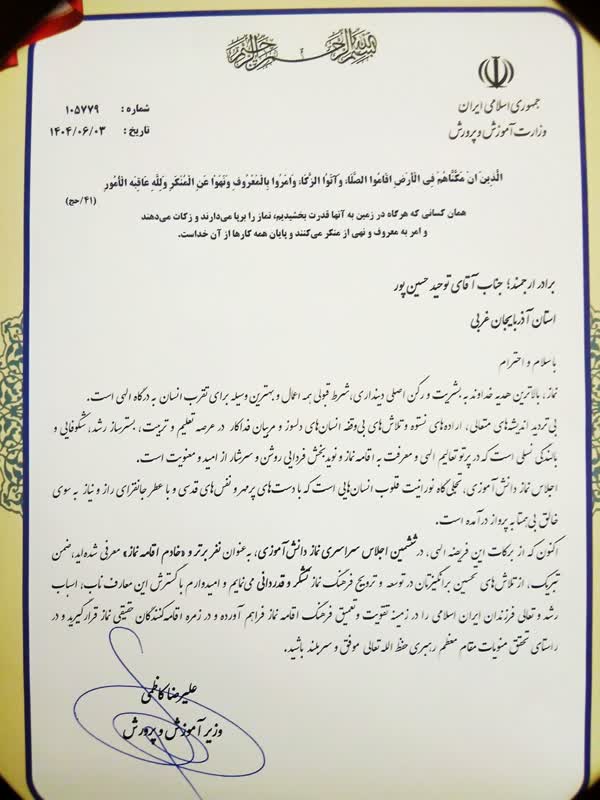 بسم الله الرحمن الرحیم
جمهوری اسلامی ایران
وزارت آموزش و پرورش
شماره : ۱۰۵۷۷۹
تاریخ : ۱۴۰۴/۰۶/۰۳
الَّذینَ انْ مَکَّنَّاهُمْ فِی الْأَرْضِ اقامُوا الصَّلاةَ وَآتَوُا الزَّکاةَ وَامَرُوا بِالْمَعْرُوفِ وَنَهَوْا عَنِ الْمُنْکَرِ وَلِلَّهِ عاقِبَه الْأُمُورِ
(۴۱/حج)
همان کسانی که هرگاه در زمین به آنها قدرت بخشیدیم، نماز را برپا می‌دارند و زکات می‌دهند
و امر به معروف و نهی از منکر می‌کنند و پایان همه کارها از آن خداست.
برادر ارجمند؛ جناب آقای توحید حسین پور
استان آذربایجان غربی
با سلام و احترام
نماز، بالاترین هدیه خداوند به بشریت و رکن اصلی دینداری، شرط قبولی همه اعمال و بهترین وسیله برای تقرب انسان به درگاه الهی است.
بی‌تردید اندیشه‌های متعالی، اراده‌های نستوه و تلاش‌های بی‌وقفه انسان‌های دلسوز و مربیان فداکار در عرصه تعلیم و تربیت، بسترساز رشد، شکوفایی و
بالندگی نسلی است که در پرتو تعالیم الهی و معرفت به اقامه نماز و نویدبخش فردایی روشن و سرشار از امید و معنویت است.
اجلاس نماز دانش‌آموزی، تجلی‌گاه نورانیت قلوب انسان‌هایی است که با دست‌های پرمهر و نفس‌های قدسی و با عطر جانفزای راز و نیاز به سوی
خالق بی‌همتا به پرواز درآمده است.
اکنون که از برکات این فریضه الهی، در ششمین اجلاس سراسری نماز دانش‌آموزی، به عنوان نفر برتر و «خادم اقامه نماز» معرفی شده‌اید، ضمن
تبریک، از تلاش‌های تحسین برانگیزتان در توسعه و ترویج فرهنگ نماز تشکر و قدردانی می‌نمایم و امیدوارم با گسترش این معارف ناب، اسباب
رشد و تعالی فرزندان ایران اسلامی را در زمینه تقویت و تعمیق فرهنگ اقامه نماز فراهم آورده و در زمره اقامه‌کنندگان حقیقی نماز قرار گیرید و در
راستای تحقق منویات مقام معظم رهبری حفظ الله تعالی موفق و سربلند باشید.
علیرضا کاظمی
وزیر آموزش و پرورش